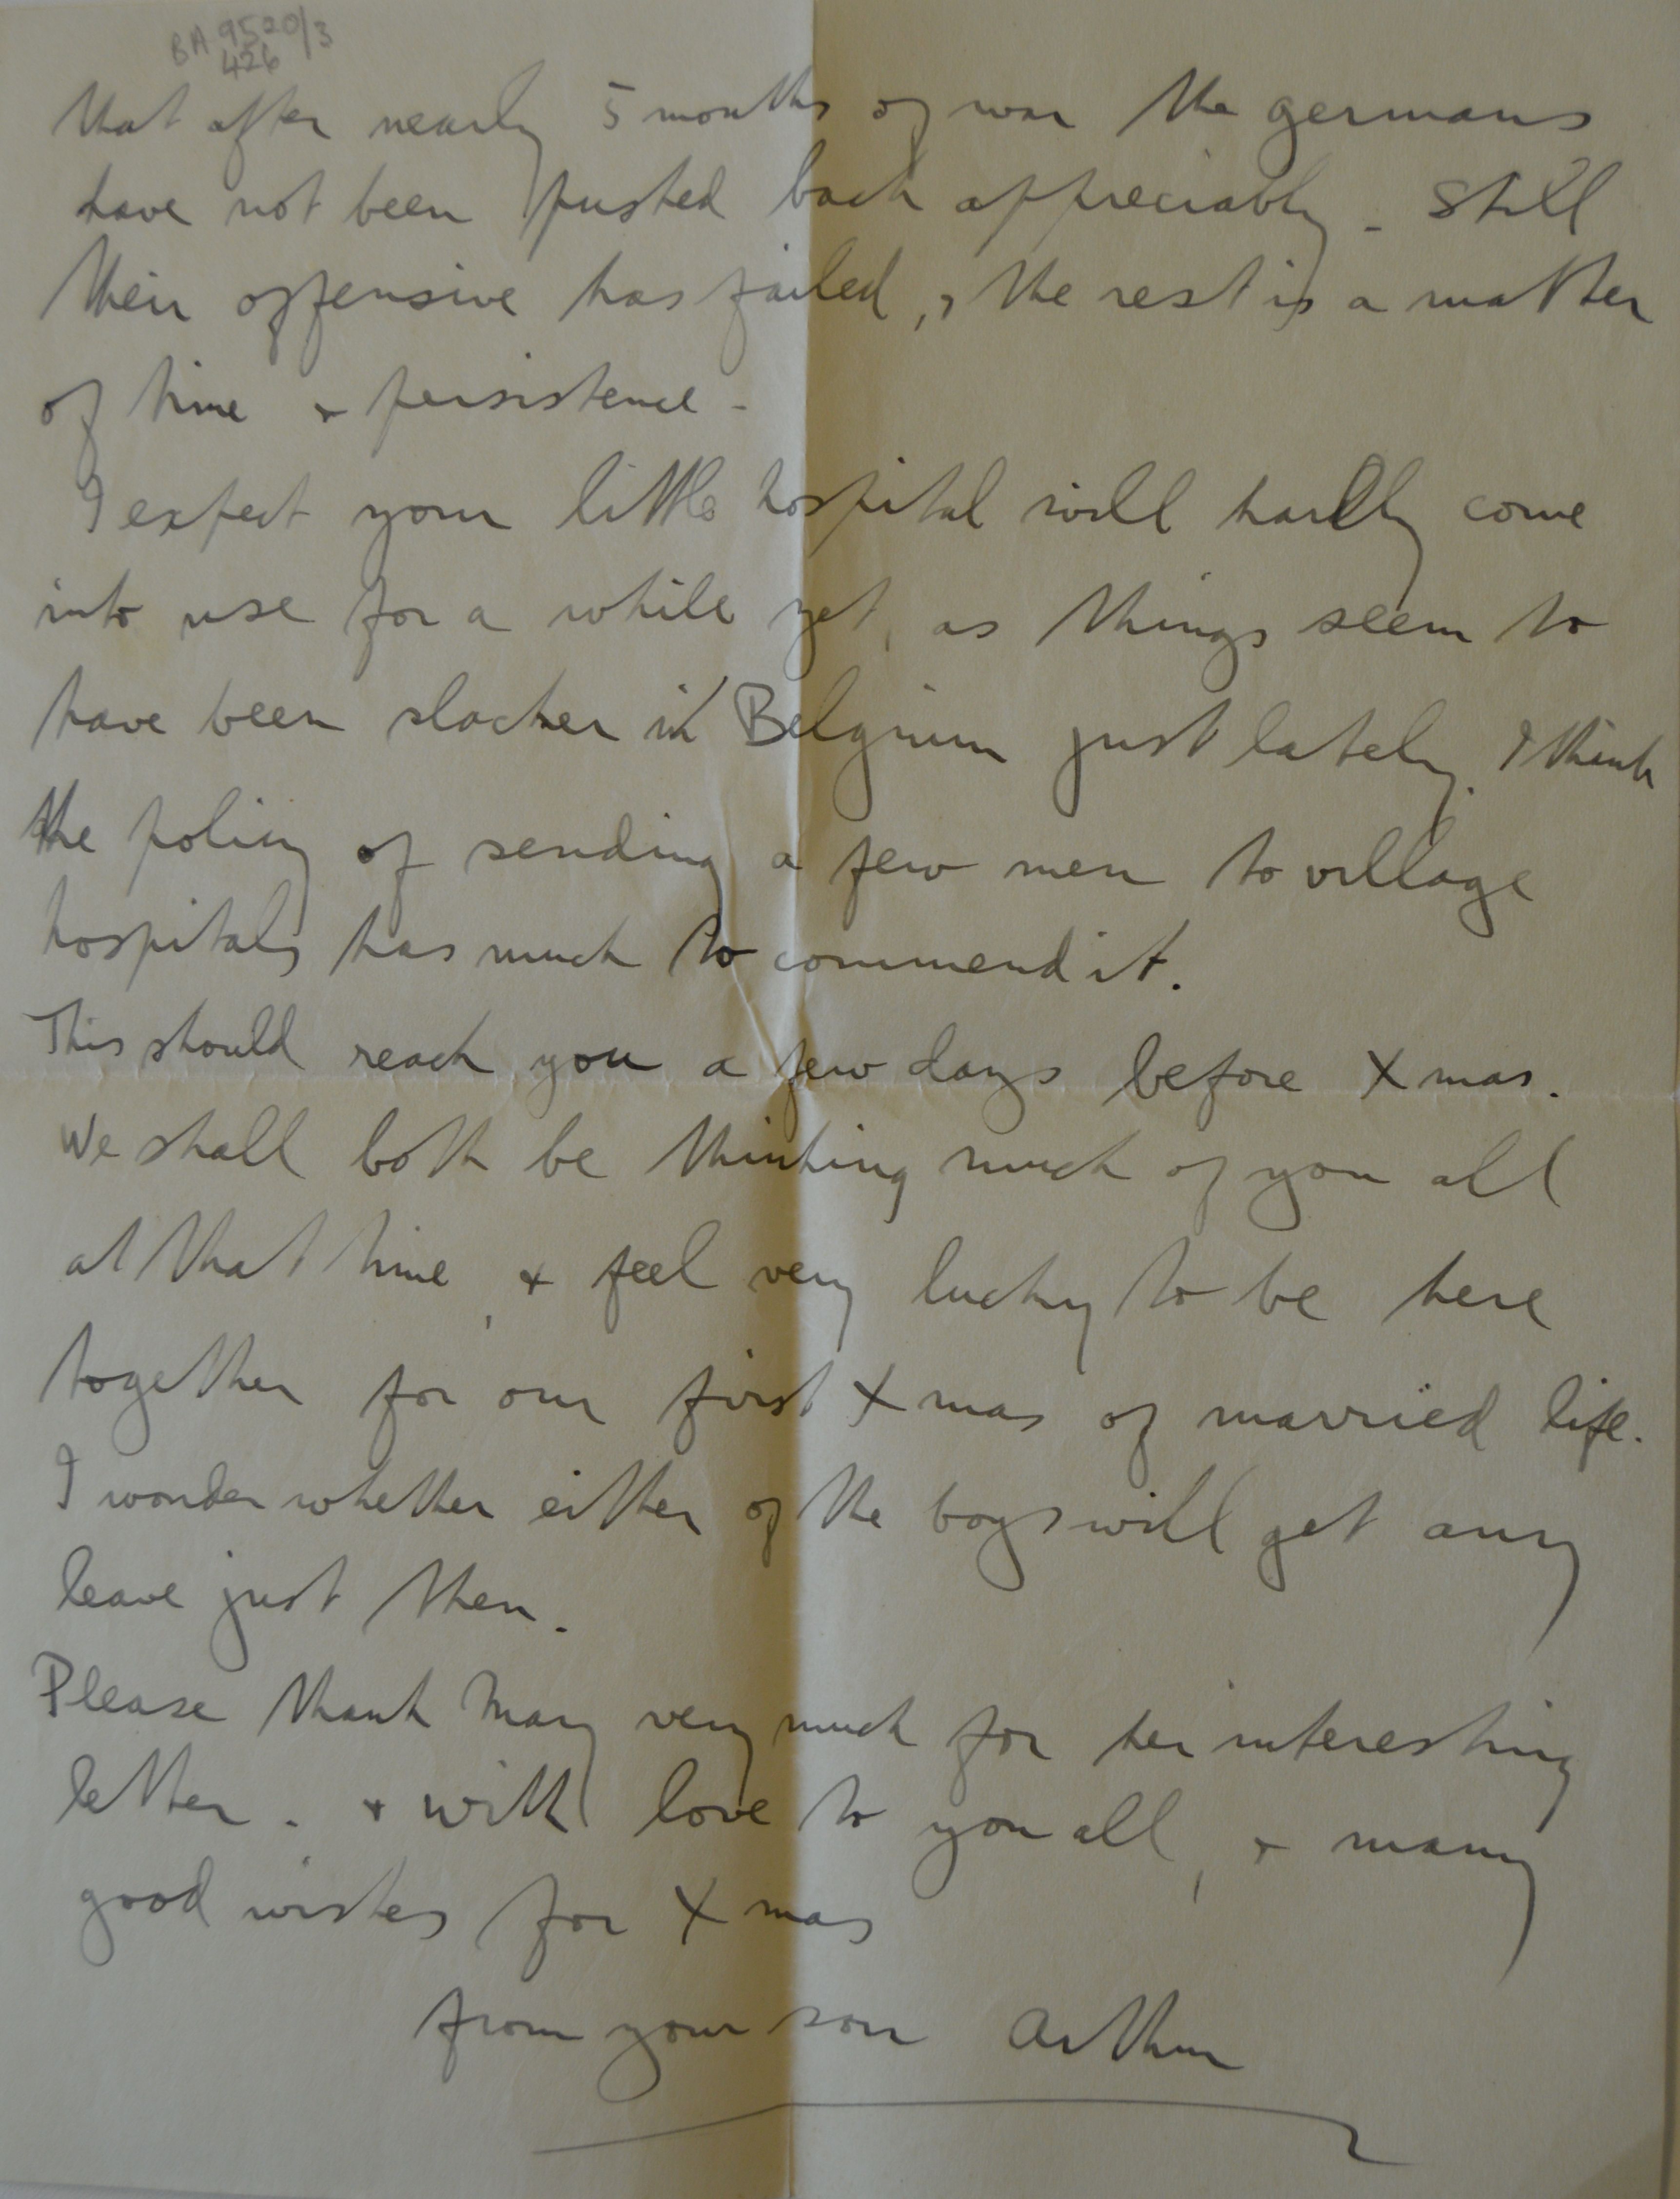 BA 9520/3
426
that after nearly 5 months of war the germans
have not been pushed back appreciably - Still
their offensive has failed, , the rest is a matter
of time + persistence -
I expect your little hospital will hardly come
into use for a while yet, as things seem to
have been slacker in Belgium just lately. I think
the policy of sending a few men to village
hospitals has much to commend it.
This should reach you a few days before Xmas.
We shall both be thinking much of you all
at that time, + feel very lucky to be here
together for our first Xmas of married life.
I wonder whether either of the boys will get any
leave just then.
Please thank Mary very much for her interesting
letter. + with love to you all, + many
good wishes for Xmas
from your son Arthur